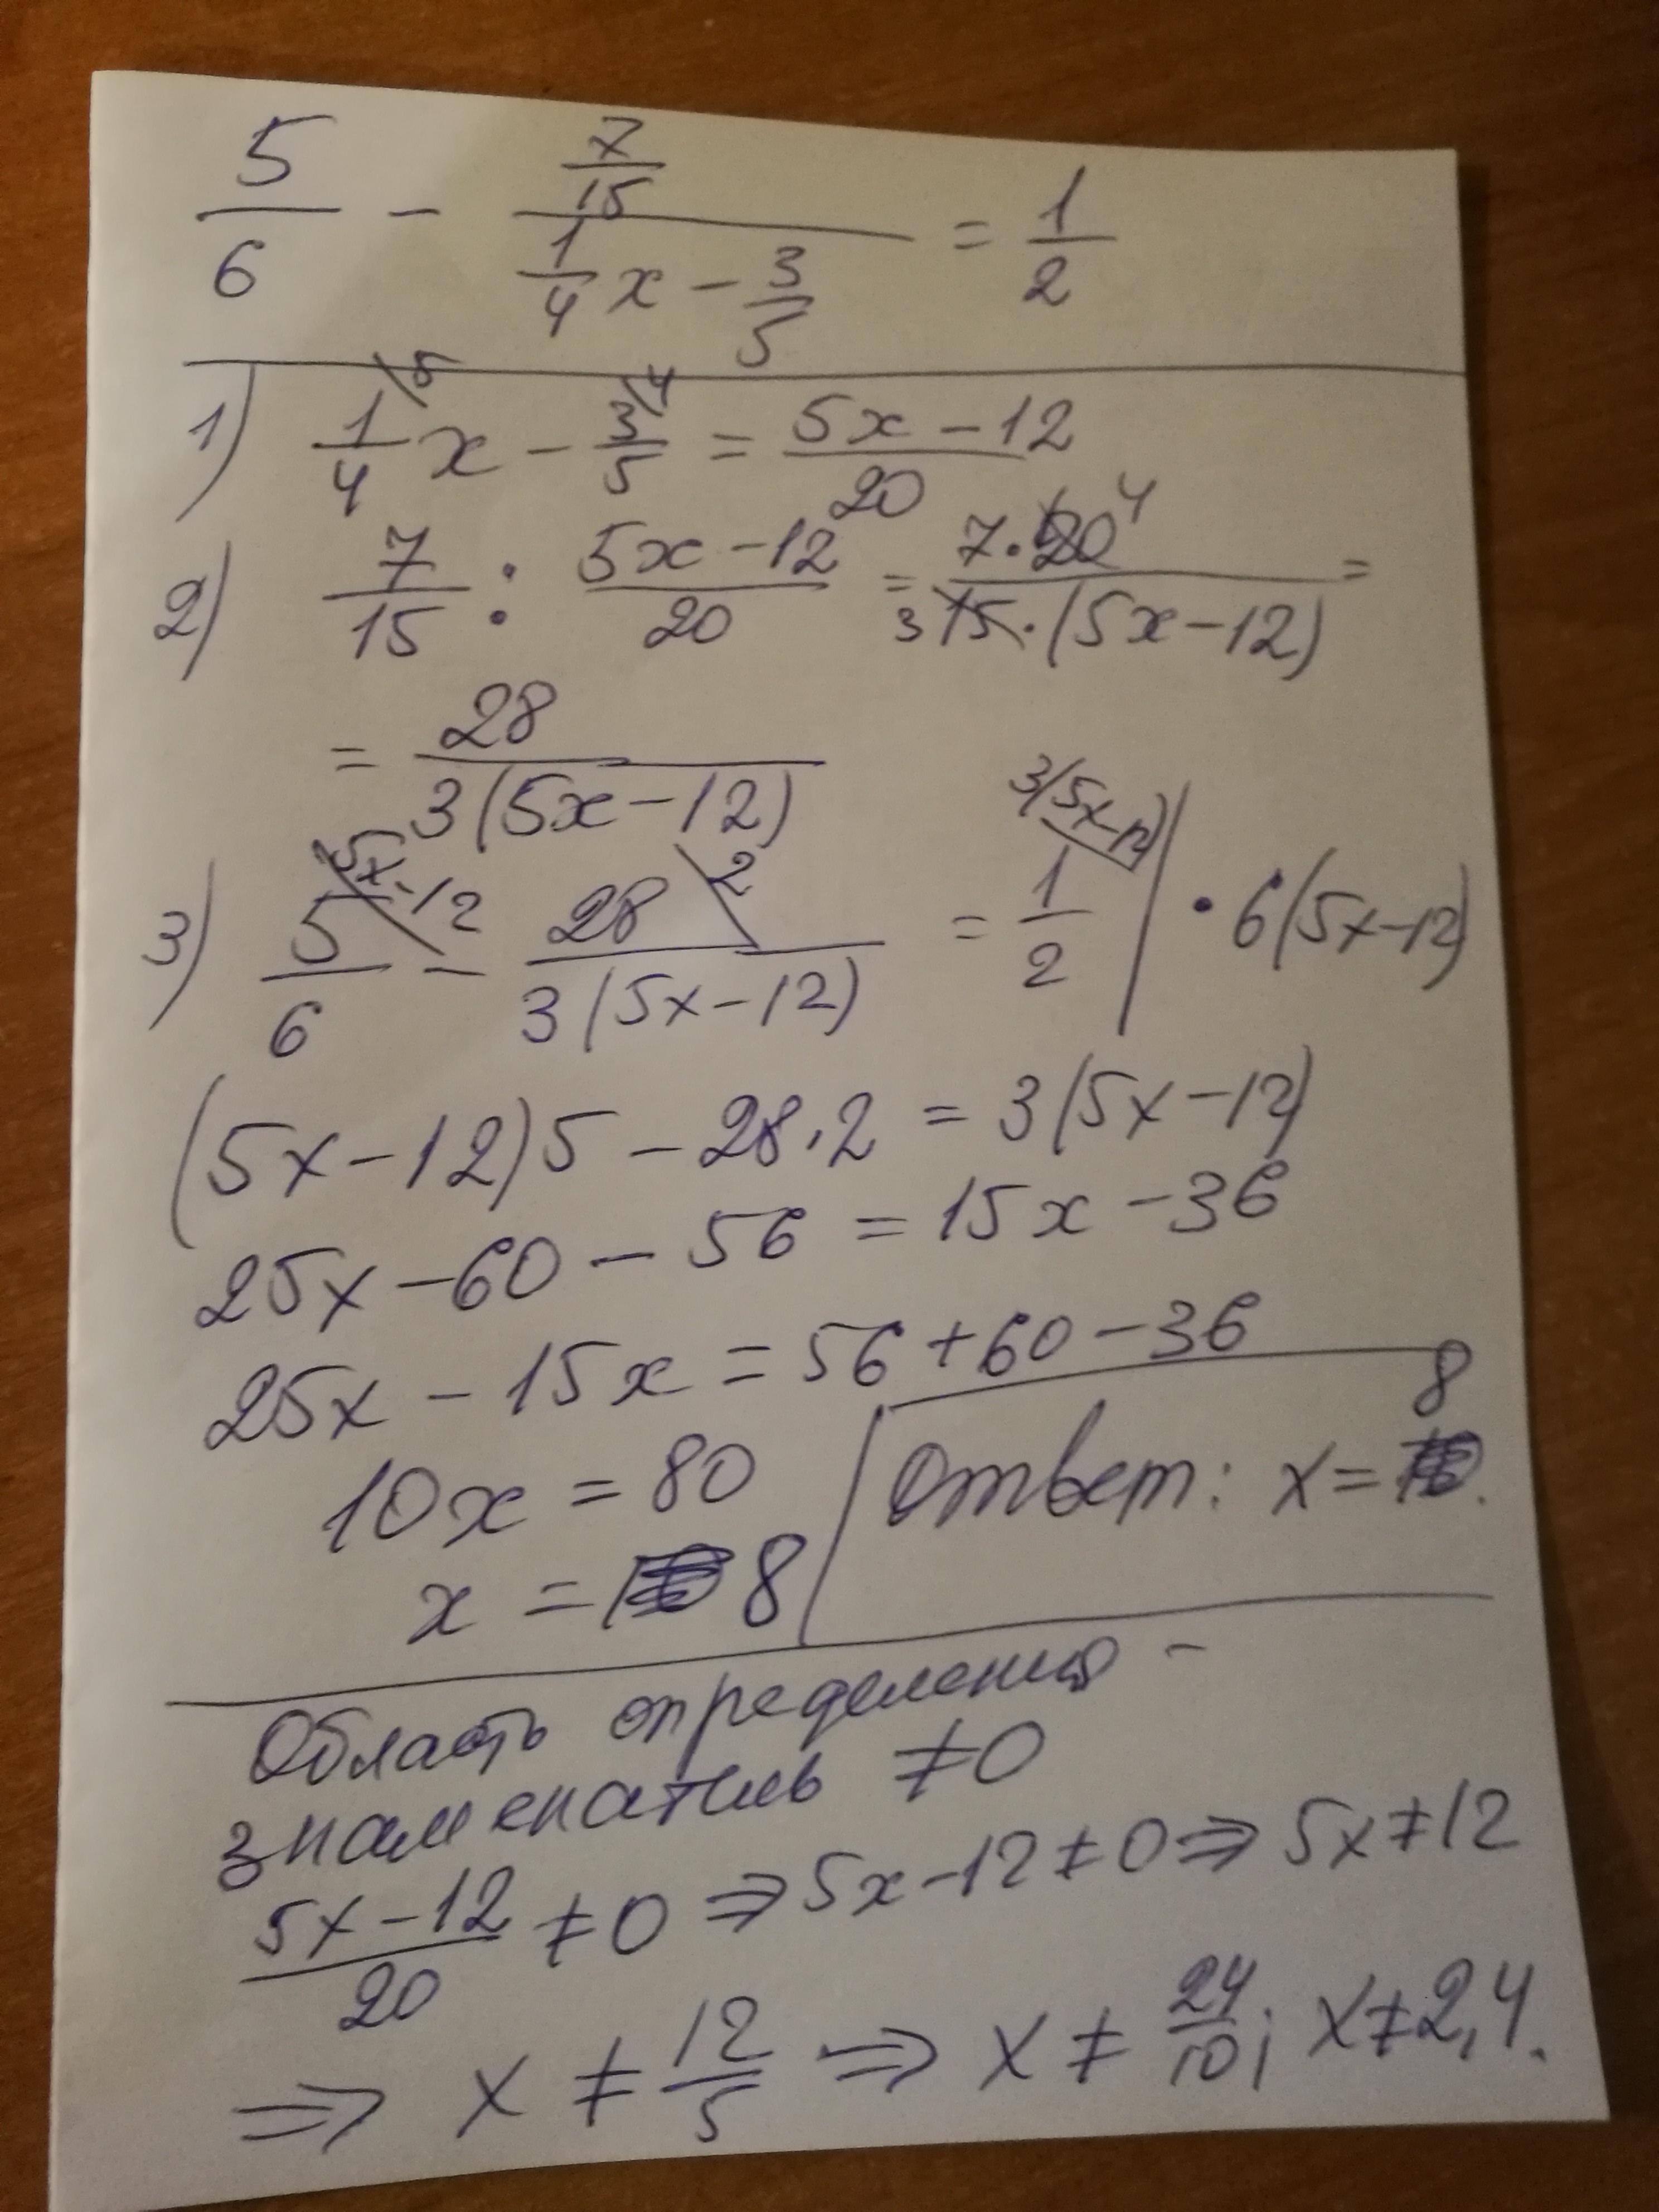 5/6 - (7/15)/(1/4 x - 3/5) = 1/2
1) 1/4 \5 x - 3/5 \4 = (5x-12)/20
2) 7/15 : (5x-12)/20 = (7·20 4)/(3 15·(5x-12)) =
= 28/(3(5x-12))
3) 5/6 \5x-12 - 28/(3(5x-12)) \2 = 1/2 \3(5x-12) | · 6(5x-12)
(5x-12)5 - 28·2 = 3(5x-12)
25x - 60 - 56 = 15x - 36
25x - 15x = 56 + 60 - 36
10x = 80
x = 8
Ответ: x = 8.
Область определения -
знаменатель ≠0
(5x-12)/20 ≠0 ⇒ 5x-12≠0 ⇒ 5x≠12
⇒ x ≠ 12/5 ⇒ x ≠ 24/10; x≠2,4.